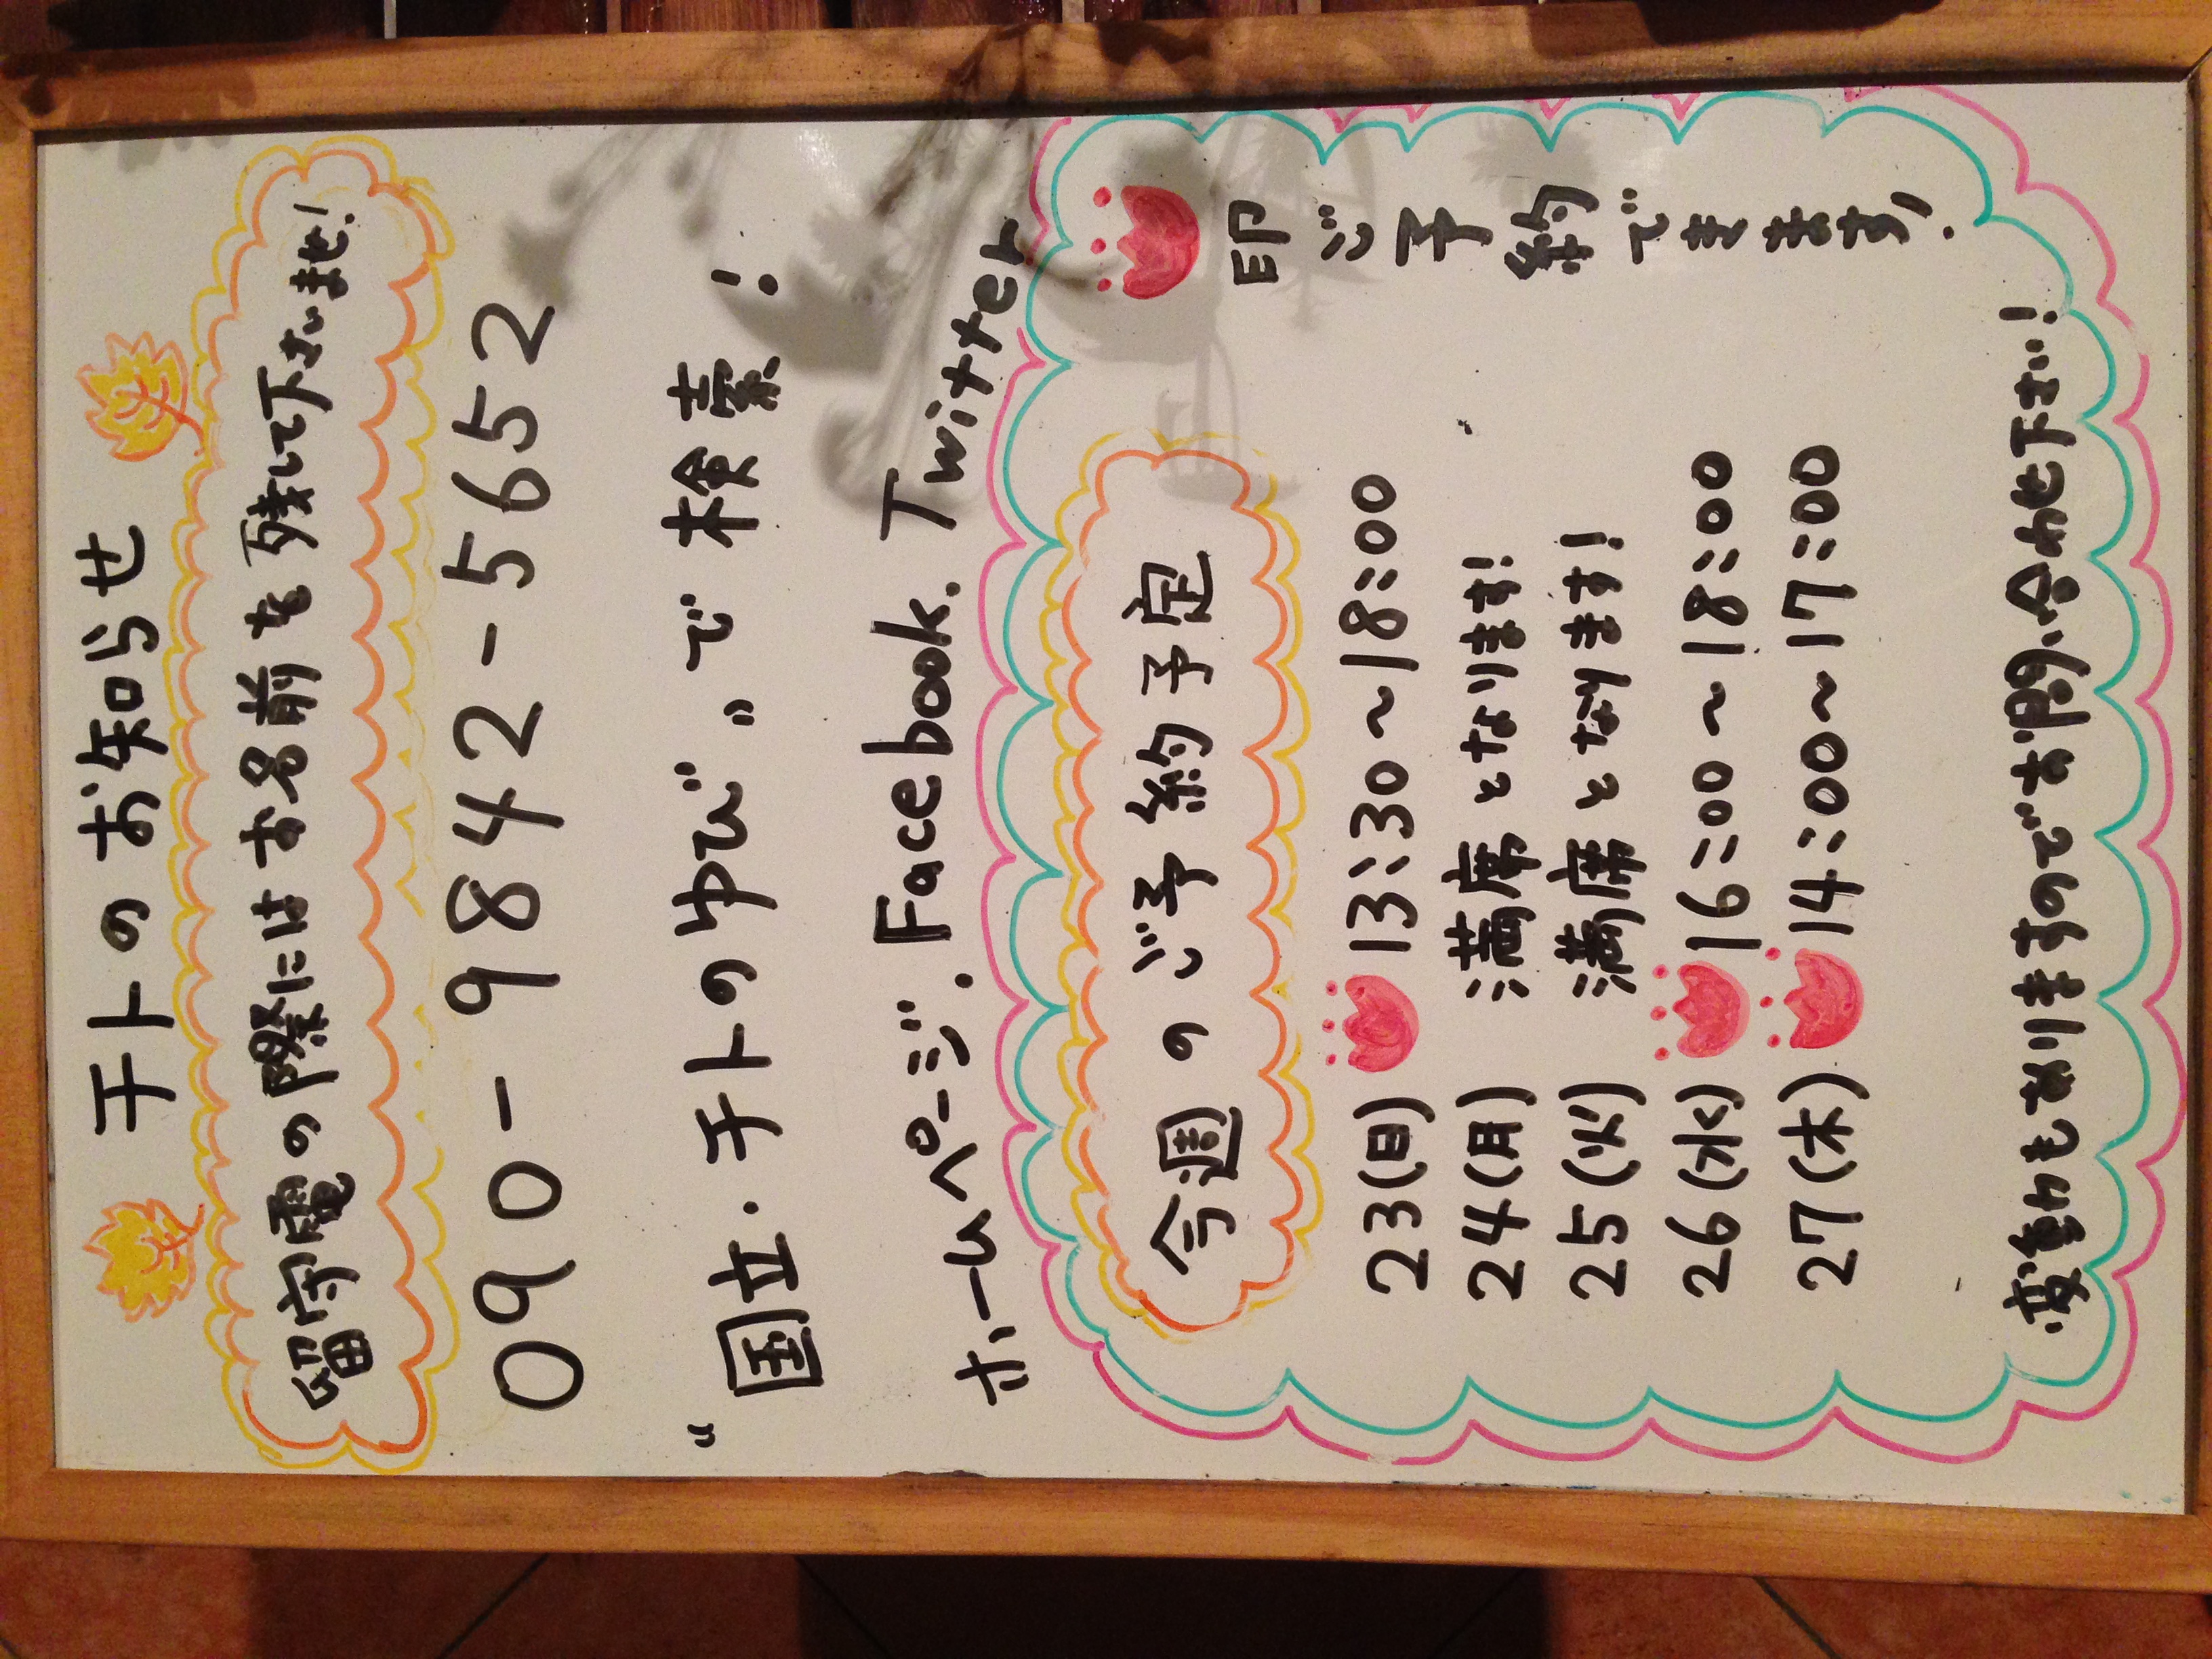 チトのお知らせ
留守電の際にはお名前を残して下さいませ!
090-9842-5652
"国立・チトのゆび"で検索!
ホームページ.Facebook.Twitter
今週のご予約予定
印ご予約できます!
23(日) 13:30~18:00
24(月) 満席となります!
25(火) 満席となります!
26(水) 16:00~18:00
27(木) 14:00~17:00
変動もありますのでお問い合わせ下さい!